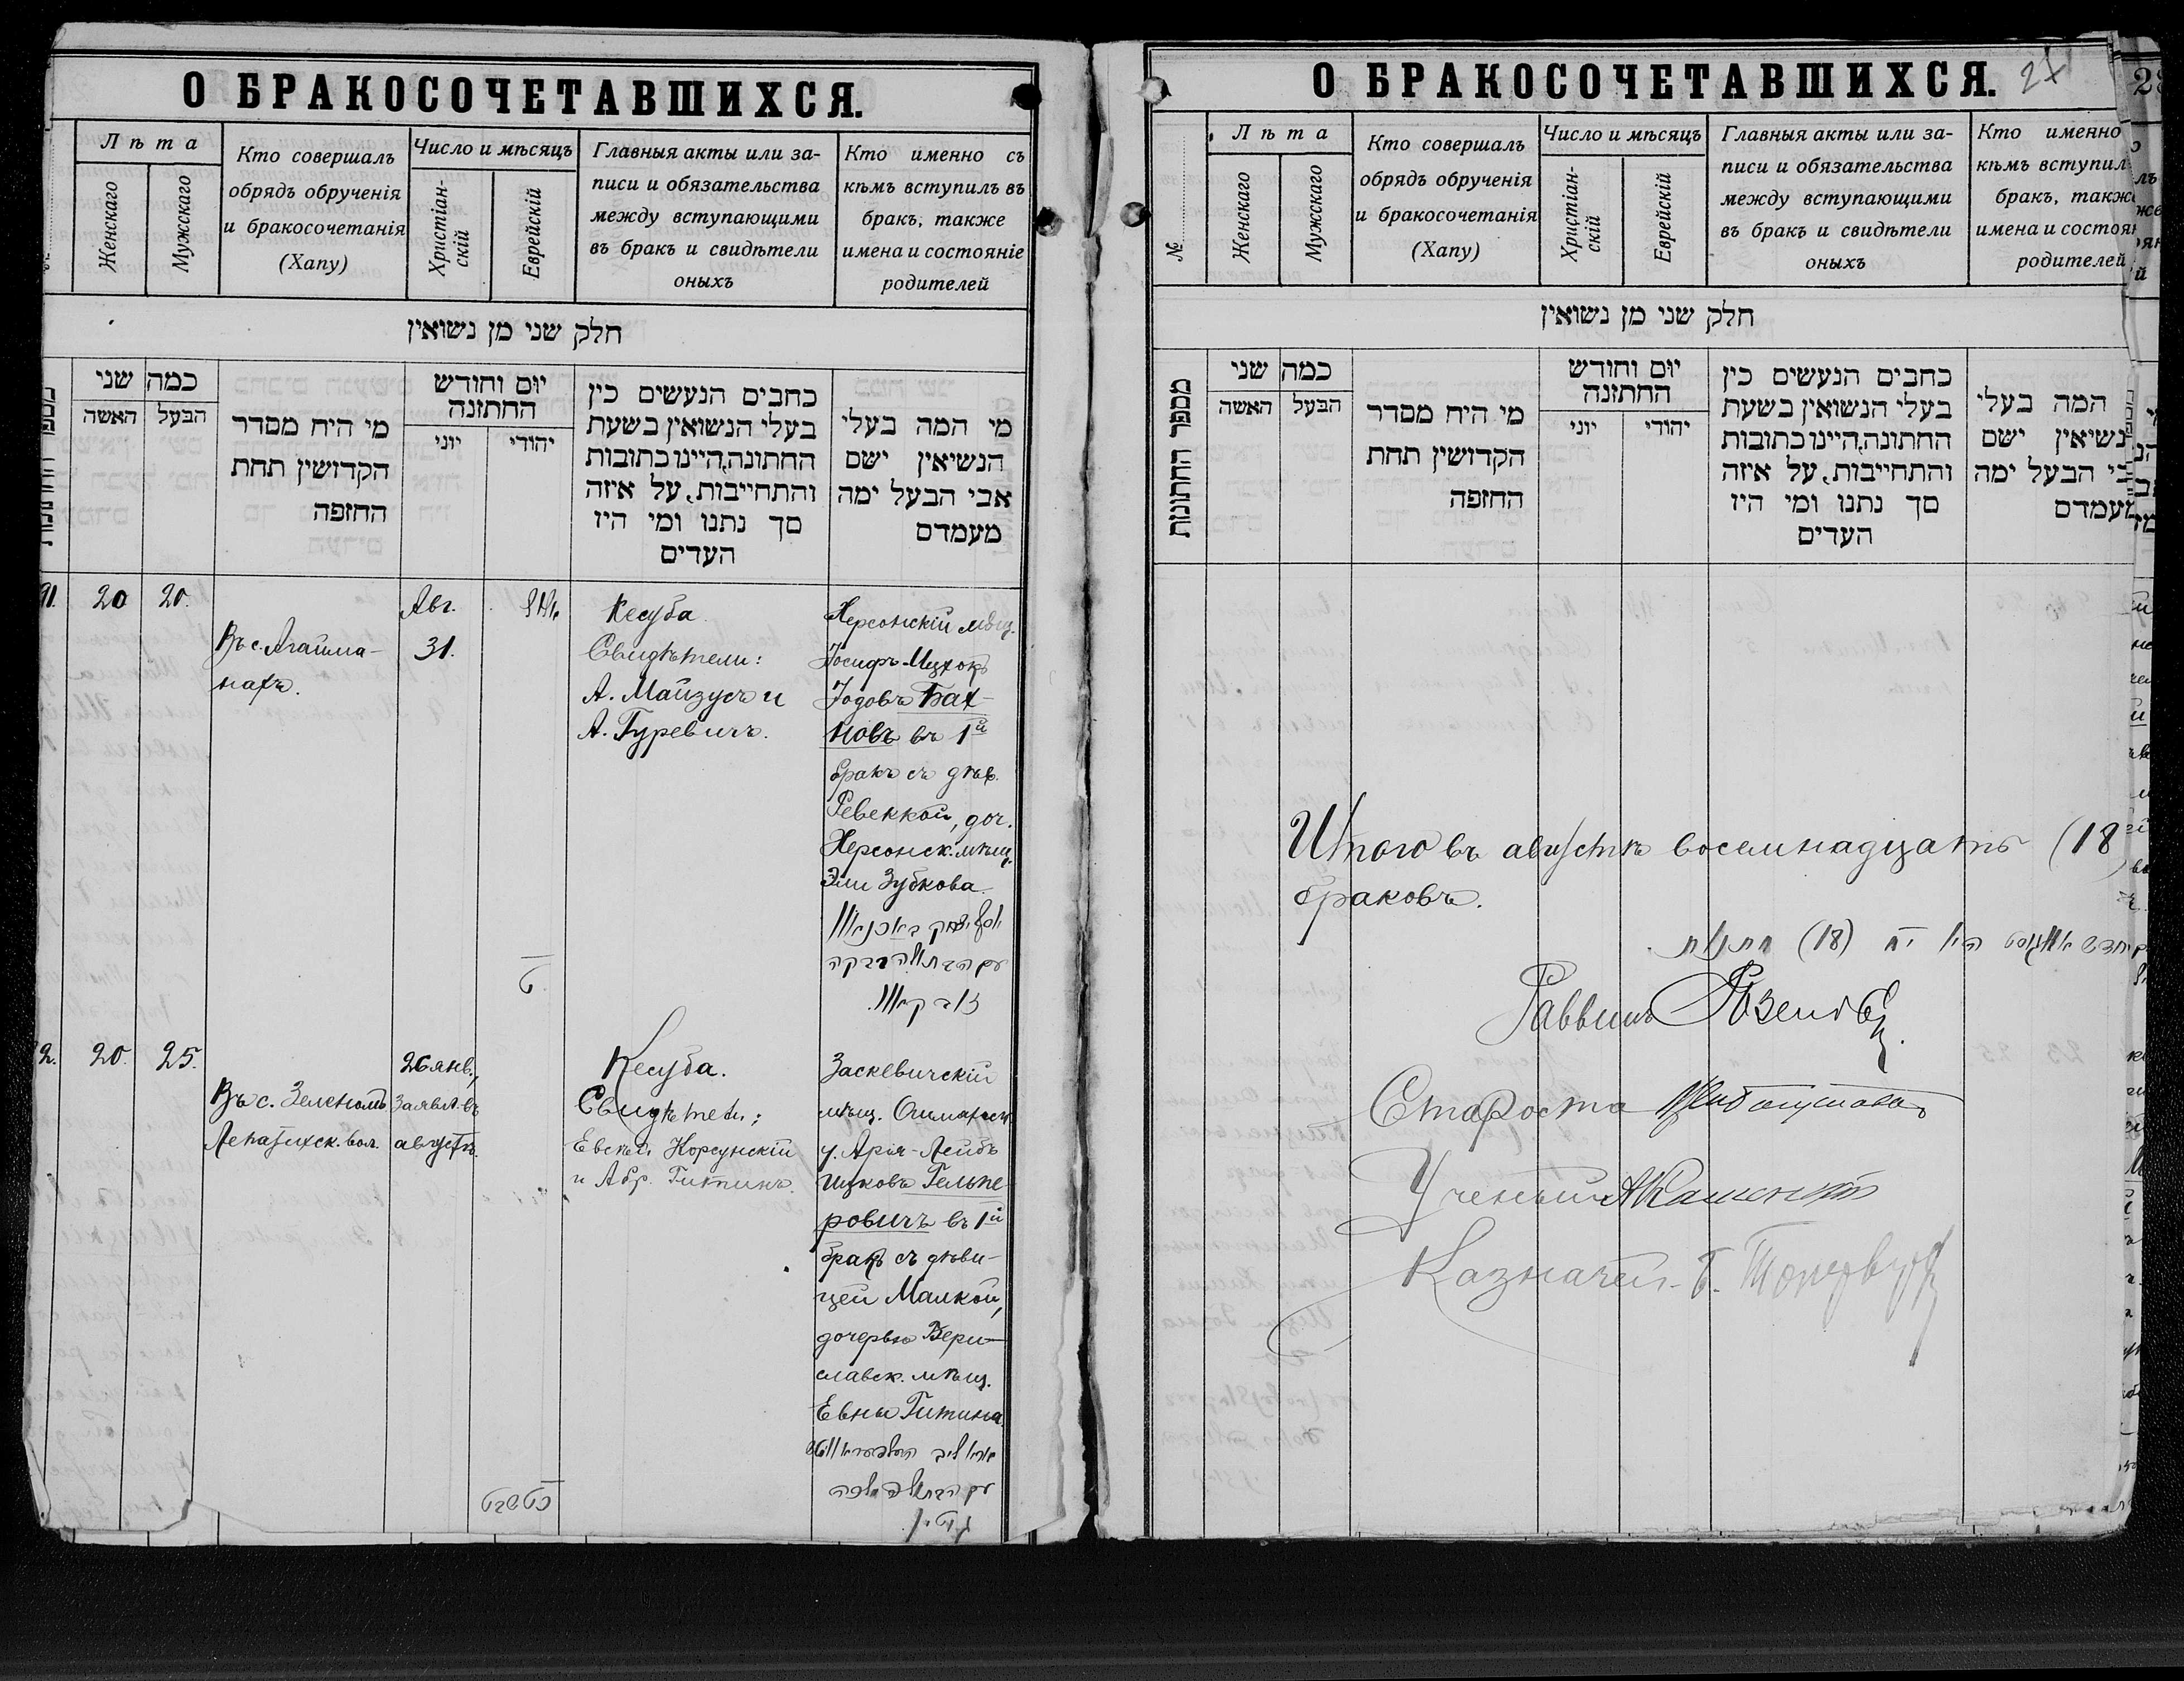 О БРАКОСОЧЕТАВШИХСЯ.
Лѣта
Женскаго
Мужскаго
Кто совершалъ
обрядъ обрученія
и бракосочетанія
(Хапу)
Число и мѣсяцъ
Христіан-
скій
Еврейскій
Главныя акты или за-
писи и обязательства
между вступающими
въ бракъ и свидѣтели
оныхъ
Кто именно съ
кѣмъ вступилъ въ
бракъ, также
имена и состояніе
родителей
חלק שני מן נשואין
כמה שני
האשה
הבעל
מי היח מסדר
הקדושין תחת
החזפה
יום וחודש
החתזנה
יוני
יהודי
כחבים הנעשים כין
בעלי הנשואין בשעת
החתונה,היינו כתובות
והתחייבות, על איזה
סך נתנו ומי היז
העדים
מי המה בעלי
הנשיאין ישם
אבי הבעל ימה
מעמדם
91.
20
20.
Въ с. Агайма-
нахъ.
Авг.
31.
Кесуба.
Свидѣтели:
А. Майзусъ и
А. Гуревичъ.
Херсонскій мѣщ.
Іосифъ-Ицхокъ
Іодовъ Бах-
новъ въ 1й
бракъ съ дѣв.
Ревеккой, доч.
Херсонск. мѣщ.
Эли Зубкова.
2.
20.
25.
Въ с. Зеленомъ
Лепатихск. вол.
26 янв.,
заявл. въ
августѣ.
Кесуба.
Свидѣтели:
Евсей Корсунскій
и Абр. Гитинъ.
Заскевичскій
мѣщ. Ошмянск.
у. Арія-Лейбъ
Ицковъ Гельпе-
ровичъ въ 1й
бракъ съ дѣви-
цей Малкой,
дочерью Бери-
славск. мѣщ.
Евны Гитина.
О БРАКОСОЧЕТАВШИХСЯ.
27
№
Лѣта
Женскаго
Мужскаго
Кто совершалъ
обрядъ обрученія
и бракосочетанія
(Хапу)
Число и мѣсяцъ
Христіан-
скій
Еврейскій
Главныя акты или за-
писи и обязательства
между вступающими
въ бракъ и свидѣтели
оныхъ
Кто именно
кѣмъ вступил
бракъ, также
имена и состоян
родителей
חלק שני מן נשואין
מספר החתונות
כמה שני
האשה
הבעל
מי היח מסדר
הקדושין תחת
החזפה
יום וחודש
החתזנה
יוני
יהודי
כחבים הנעשים כין
בעלי הנשואין בשעת
החתונה,היינו כתובות
והתחייבות, על איזה
סך נתנו ומי היז
העדים
המה בעלי
נשיאין ישם
בי הבעל ימה
מעמדם
Итого въ августѣ восемнадцать (18)
браковъ.
Раввинъ
Староста
Ученый
Казначей